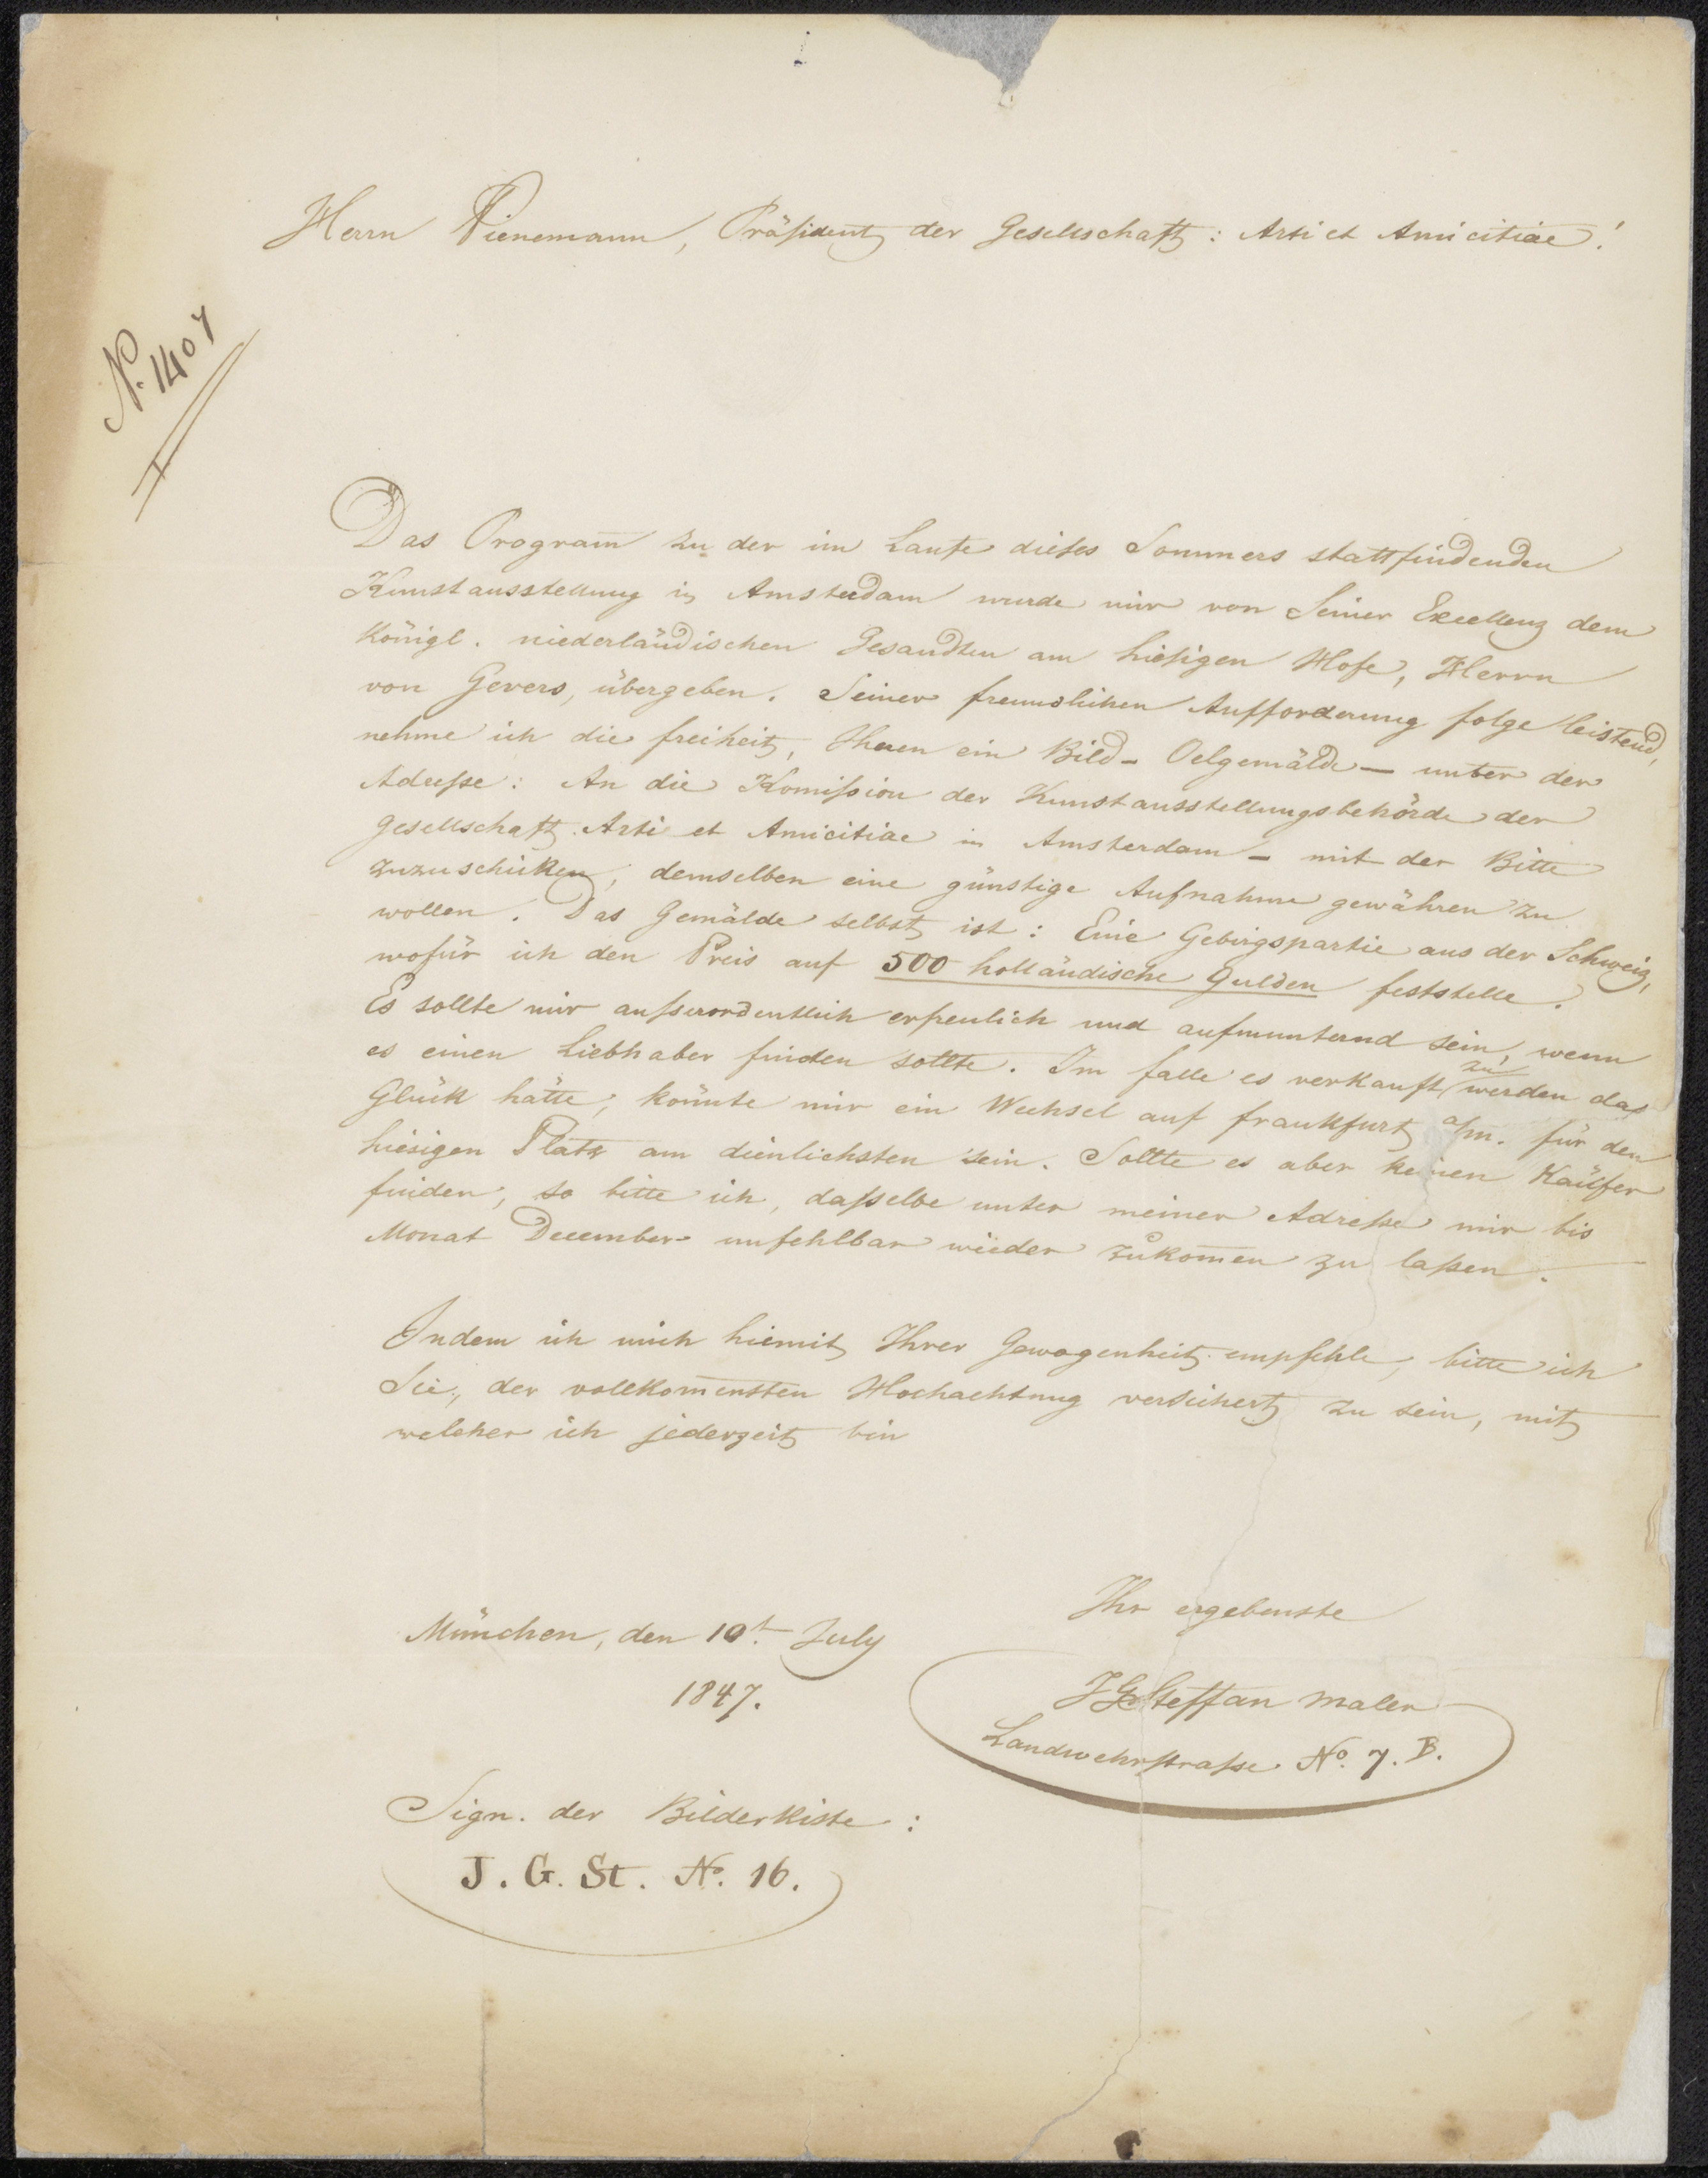 Herrn Pienemann, Präsident der Gesellschaft: Arti et Amicitiae!
N. 1407
Das Program̄ zu der im Laufe dieses Sommers stattfindenden
Kunstausstellung in Amsterdam wurde mir von Seiner Excellenz dem
Königl. niederländischen Gesandten am hiesigen Hofe, Herrn
von Gevers, übergeben. Seiner freundlichen Aufforderung folge leistend,
nehme ich die freiheit, Ihnen ein Bild - Oelgemälde — unter der
Adresse: An die Komission der Kunstausstellungsbehörde der
Gesellschaft Arti et Amicitiae in Amsterdam - mit der Bitte
zuzuschicken, demselben eine günstige Aufnahme gewähren zu
wollen. Das Gemälde selbst ist: Eine Gebirgspartie aus der Schweiz,
wofür ich den Preis auf 500 holländische Gulden feststelle.
Es sollte mir ausserordentlich erfreulich und aufmunternd sein, wenn
es einen Liebhaber finden sollte. Im falle es verkauft zu werden das
Glück hätte, könnte mir ein Wechsel auf frankfurt a/m. für den
hiesigen Platz am dienlichsten sein. Sollte es aber keinen Käufer
finden, so bitte ich, dasselbe unter meiner Adresse mir bis
Monat December unfehlbar wieder zukom̄en zu lassen.
Indem ich mich hiemit Ihrer Gewogenheit empfehle, bitte ich
Sie, der vollkom̄ensten Hochachtung versichert zu sein, mit
welcher ich jederzeit bin
Ihr ergebenste
München, den 10t. July
1847.
JGSteffan Maler
Landwehrstrasse No. 7. B.
Sign. der Bilderkiste:
J. G. St. No. 16.